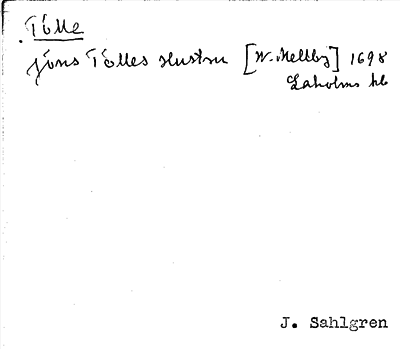 Tólle
jöns Tólles Hustru [W. Mellby] 1698
Laholms kb
J. Sahlgren